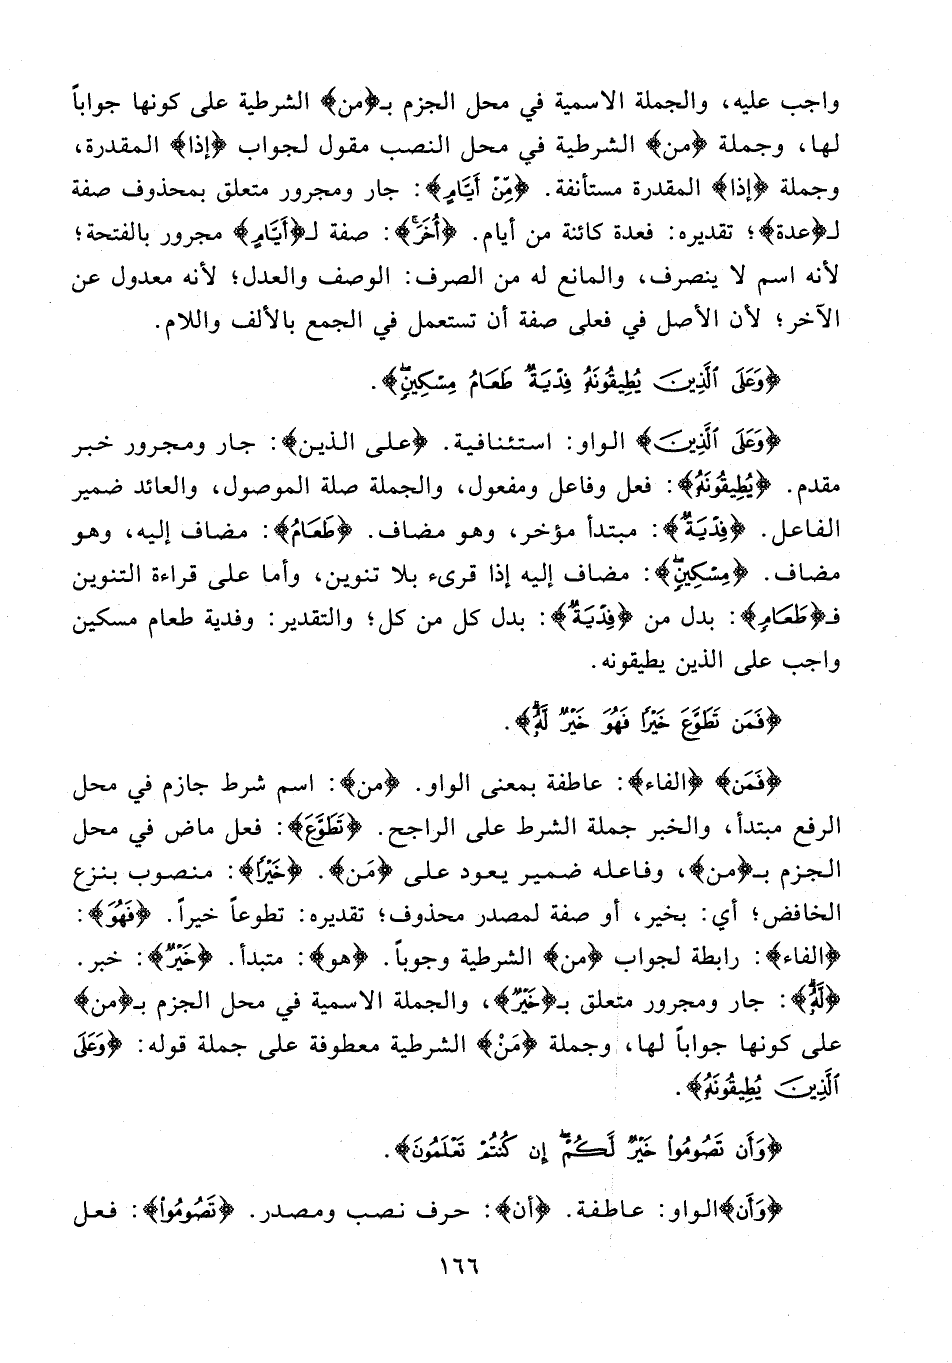 واجب عليه، والجملة الاسمية في محل الجزم بـ﴿من﴾ الشرطية على كونها جواباً
لها، وجملة ﴿من﴾ الشرطية في محل النصب مقول لجواب ﴿إذا﴾ المقدرة،
وجملة ﴿إذا﴾ المقدرة مستأنفة. ﴿مِّنْ أَيَّامٍ﴾: جار ومجرور متعلق بمحذوف صفة
لـ﴿عدة﴾؛ تقديره: فعدة كائنة من أيام. ﴿أُخَرَۚ﴾: صفة لـ﴿أَيَّامٍ﴾ مجرور بالفتحة؛
لأنه اسم لا ينصرف، والمانع له من الصرف: الوصف والعدل؛ لأنه معدول عن
الآخر؛ لأن الأصل في فعلى صفة أن تستعمل في الجمع بالألف واللام.
﴿وَعَلَى ٱلَّذِينَ يُطِيقُونَهُۥ فِدْيَةٌ طَعَامُ مِسْكِينٍۖ﴾.
﴿وَعَلَى ٱلَّذِينَ﴾ الواو: استئنافية. ﴿على الذين﴾: جار ومجرور خبر
مقدم. ﴿يُطِيقُونَهُۥ﴾: فعل وفاعل ومفعول، والجملة صلة الموصول، والعائد ضمير
الفاعل. ﴿فِدْيَةٌ﴾: مبتدأ مؤخر، وهو مضاف. ﴿طَعَامُ﴾: مضاف إليه، وهو
مضاف. ﴿مِسْكِينٍۖ﴾: مضاف إليه إذا قرىء بلا تنوين، وأما على قراءة التنوين
فـ﴿طَعَامِ﴾: بدل من ﴿فِدْيَةٌ﴾: بدل كل من كل؛ والتقدير: وفدية طعام مسكين
واجب على الذين يطيقونه.
﴿فَمَن تَطَوَّعَ خَيْرًا فَهُوَ خَيْرٌ لَّهُۥۚ﴾.
﴿فَمَن﴾ ﴿الفاء﴾: عاطفة بمعنى الواو. ﴿من﴾: اسم شرط جازم في محل
الرفع مبتدأ، والخبر جملة الشرط على الراجح. ﴿تَطَوَّعَ﴾: فعل ماض في محل
الجزم بـ﴿من﴾، وفاعله ضمير يعود على ﴿مَن﴾. ﴿خَيْرًا﴾: منصوب بنزع
الخافض؛ أي: بخير، أو صفة لمصدر محذوف؛ تقديره: تطوعاً خيراً. ﴿فَهُوَ﴾:
﴿الفاء﴾: رابطة لجواب ﴿من﴾ الشرطية وجوباً. ﴿هو﴾: متبدأ. ﴿خَيْرٌ﴾: خبر.
﴿لَّهُۥۚ﴾: جار ومجرور متعلق بـ﴿خَيْرٌ﴾، والجملة الاسمية في محل الجزم بـ﴿من﴾
على كونها جواباً لها، وجملة ﴿مَنْ﴾ الشرطية معطوفة على جملة قوله: ﴿وَعَلَى
ٱلَّذِينَ يُطِيقُونَهُۥ﴾.
﴿وَأَن تَصُومُوا۟ خَيْرٌ لَّكُمْۖ إِن كُنتُمْ تَعْلَمُونَ﴾.
﴿وَأَن﴾الواو: عاطفة. ﴿أن﴾: حرف نصب ومصدر. ﴿تَصُومُوا۟﴾: فعل
١٦٦